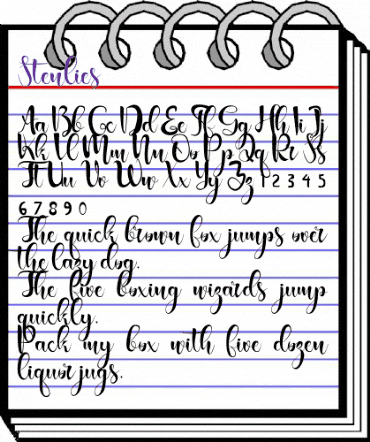 Stenlies
Aa Bb Cc Dd Ee Ff Gg Hh Ii Jj
Kk Ll Mm Nn Oo Pp Qq Rr Ss
Tt Uu Vv Ww Xx Yy Zz 1 2 3 4 5
6 7 8 9 0
The quick brown fox jumps over
the lazy dog.
The five boxing wizards jump
quickly.
Pack my box with five dozen
liquor jugs.